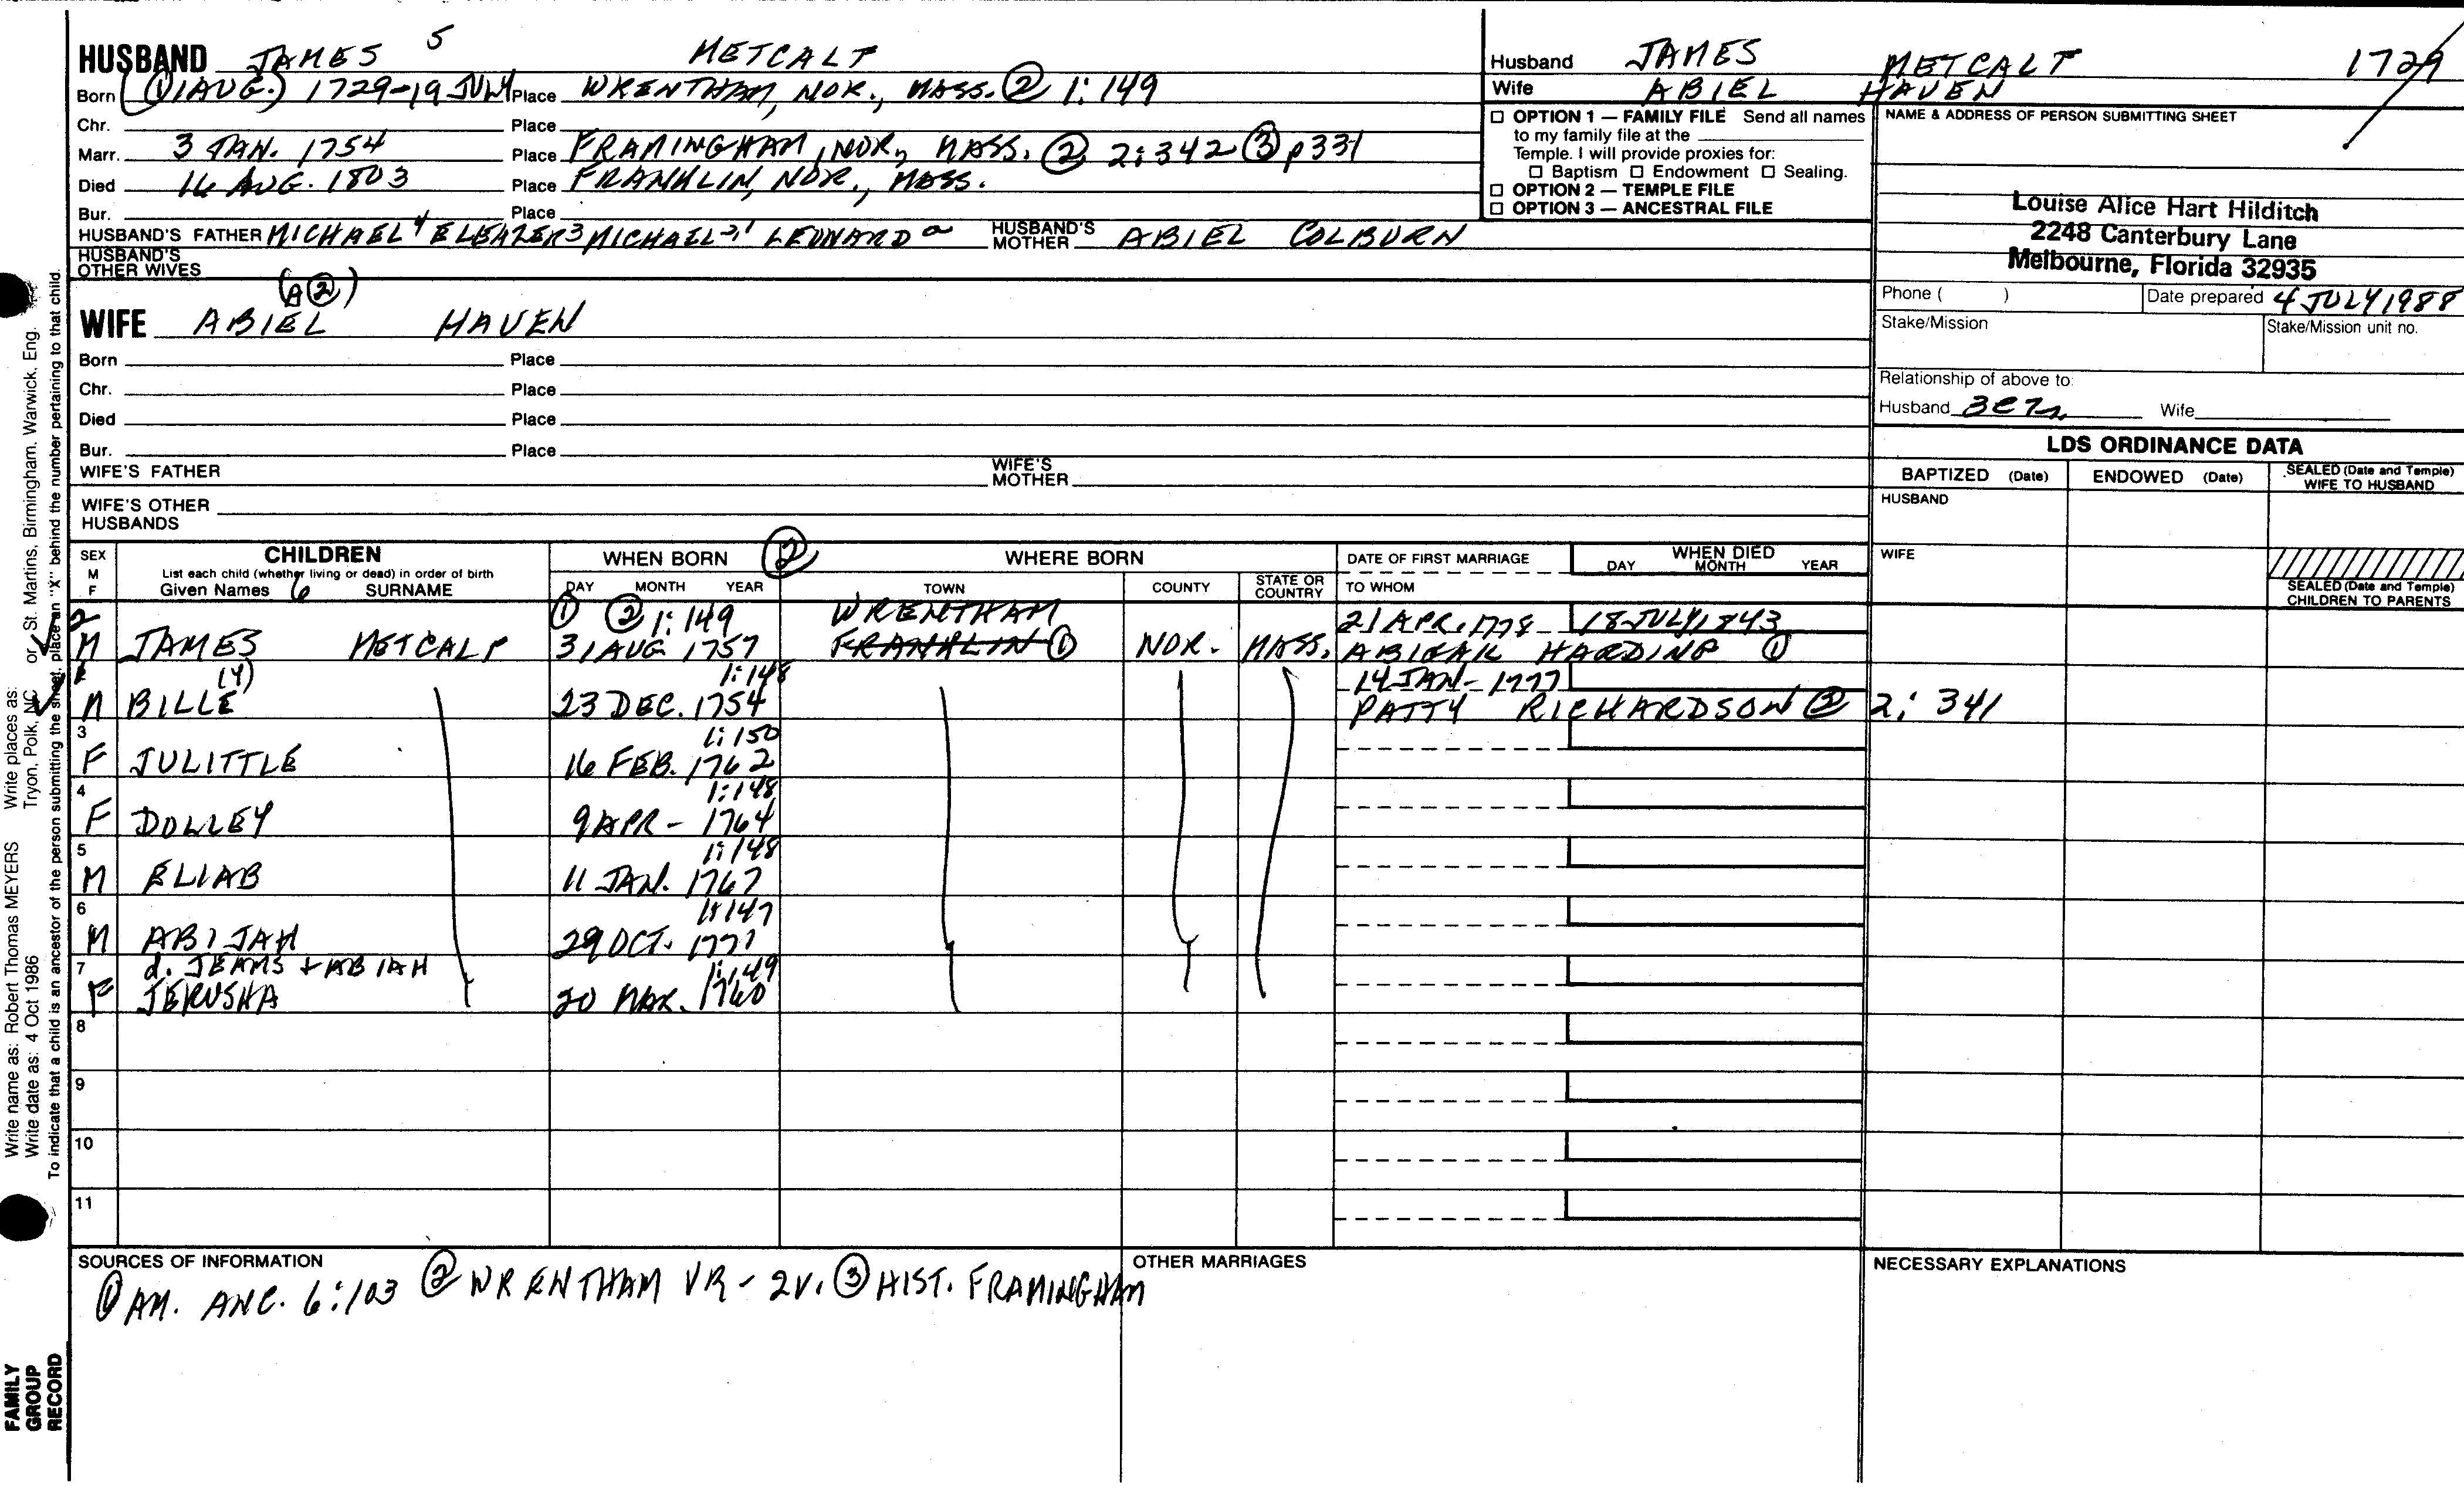 HUSBAND JAMES 5 METCALF
Born (① 1 AUG.) 1729-19 JULY Place WRENTHAM, NOR., MASS. ② 1:149
Chr. Place
Marr. 3 JAN. 1754 Place FRAMINGHAM, NOR., MASS. ② 2:342 ③ p331
Died 16 AUG. 1803 Place FRANKLIN, NOR., MASS.
Bur. Place
HUSBAND'S FATHER MICHAEL 4 ELEAZER 3 MICHAEL 2,1 LEONARD a HUSBAND'S MOTHER ABIEL COLBURN
HUSBAND'S OTHER WIVES
(A②)
WIFE ABIEL HAVEN
Born Place
Chr. Place
Died Place
Bur. Place
WIFE'S FATHER WIFE'S MOTHER
WIFE'S OTHER HUSBANDS
Husband JAMES METCALF 1729
Wife ABIEL HAVEN
☐ OPTION 1 — FAMILY FILE Send all names
to my family file at the
Temple. I will provide proxies for:
☐ Baptism ☐ Endowment ☐ Sealing.
☐ OPTION 2 — TEMPLE FILE
☐ OPTION 3 — ANCESTRAL FILE
NAME & ADDRESS OF PERSON SUBMITTING SHEET
Louise Alice Hart Hilditch
2248 Canterbury Lane
Melbourne, Florida 32935
Phone ( ) Date prepared 4 JULY 1988
Stake/Mission Stake/Mission unit no.
Relationship of above to:
Husband Wife
LDS ORDINANCE DATA
BAPTIZED (Date) ENDOWED (Date) SEALED (Date and Temple) WIFE TO HUSBAND
HUSBAND
WIFE
SEALED (Date and Temple) CHILDREN TO PARENTS
SEX M F CHILDREN WHEN BORN ② WHERE BORN DATE OF FIRST MARRIAGE WHEN DIED
List each child (whether living or dead) in order of birth
Given Names 6 SURNAME DAY MONTH YEAR TOWN COUNTY STATE OR COUNTRY TO WHOM DAY MONTH YEAR
2 ① ② 1:149 WRENTHAM 21 APR. 1778 18 JULY 1843
M JAMES METCALF 31 AUG 1757 FRANKLIN ① NOR. MASS. ABIGAIL HARDING ①
1 (4) 1:148 14 JAN- 1777
M BILLE 23 DEC. 1754 PATTY RICHARDSON ② 2:341
3 1:150
F JULITTLE 16 FEB. 1762
4 1:148
F DOLLEY 9 APR- 1764
5 1:148
M ELIAB 11 JAN. 1767
6 1:147
M ABIJAH 29 OCT. 1771
7 d. JEAMS + ABIAH 1:149
F JERUSHA 20 MAR. 1760
8
9
10
11
SOURCES OF INFORMATION
① AM. ANC. 6:103 ② WRENTHAM VR - 2V. ③ HIST. FRAMINGHAM
OTHER MARRIAGES
NECESSARY EXPLANATIONS
Write name as: Robert Thomas MEYERS Write places as: Tryon, Polk, NC or St. Martins, Birmingham, Warwick, Eng.
Write date as: 4 Oct 1986
To indicate that a child is an ancestor of the person submitting the sheet, place an "X" behind the number pertaining to that child.
FAMILY
GROUP
RECORD